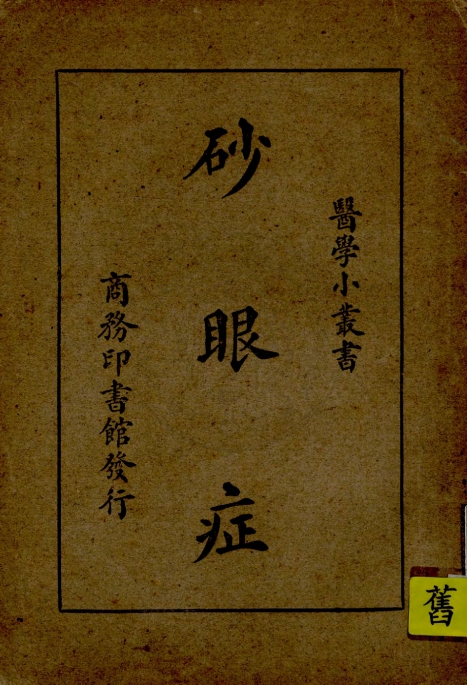 醫學小叢書
砂眼症
商務印書館發行
舊